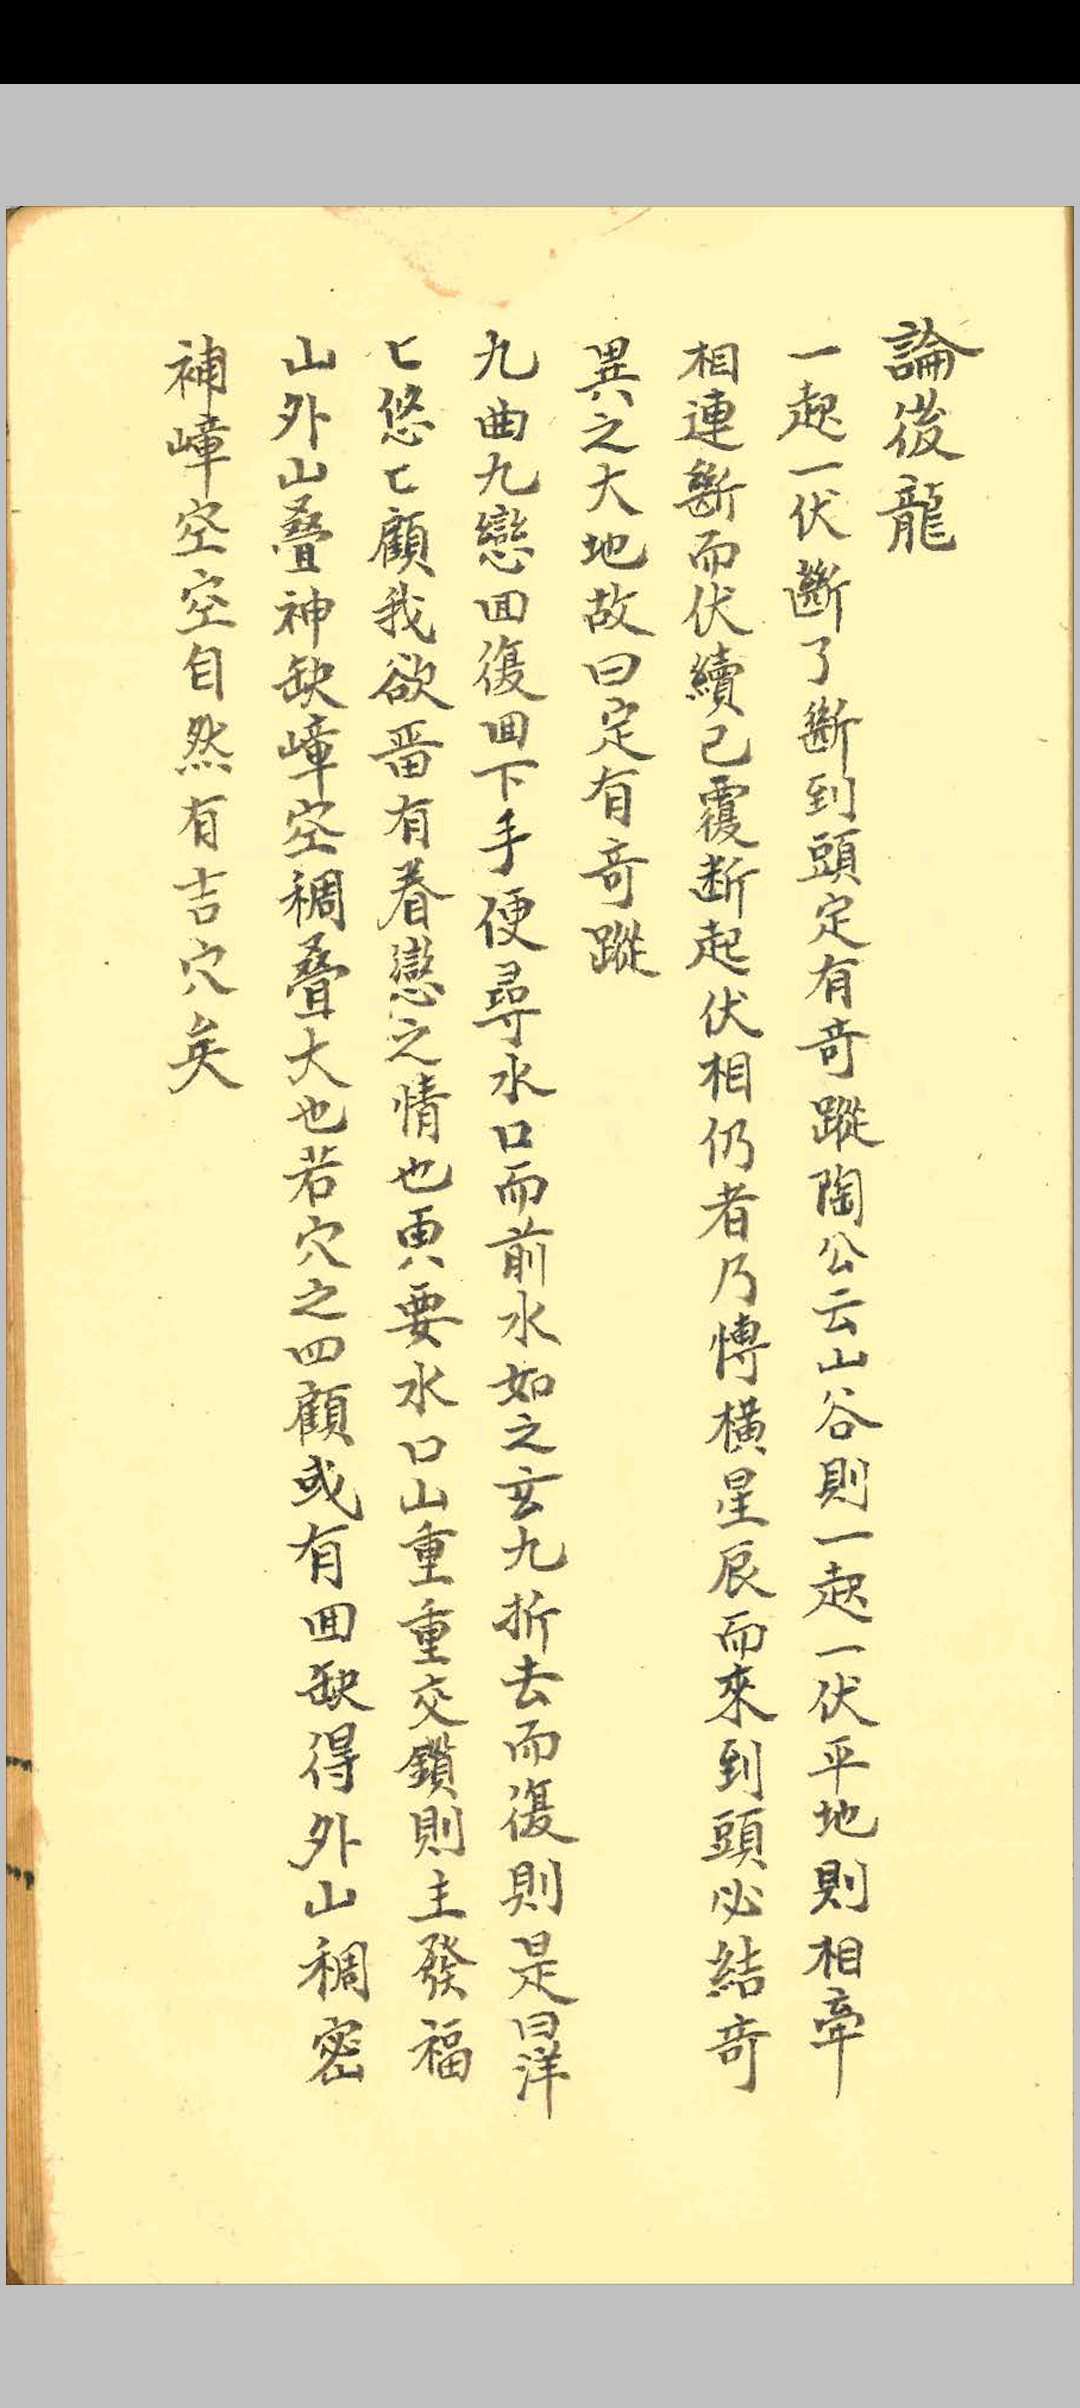 論後龍
一起一伏斷了斷到頭定有奇蹤陶公云山谷則一起一伏平地則相牽
相連斷而伏續已覆断起伏相仍者乃愽横星辰而來到頭必結奇
異之大地故曰定有奇蹤
九曲九戀回復回下手便尋水口而前水如之玄九折去而復則是曰洋
匕悠匕顧我欲畱有眷戀之情也更要水口山重重交鎖則主發福
山外山叠神缺嶂空稠叠大也若穴之四顧或有回缺得外山稠密
補嶂空空自然有吉穴矣